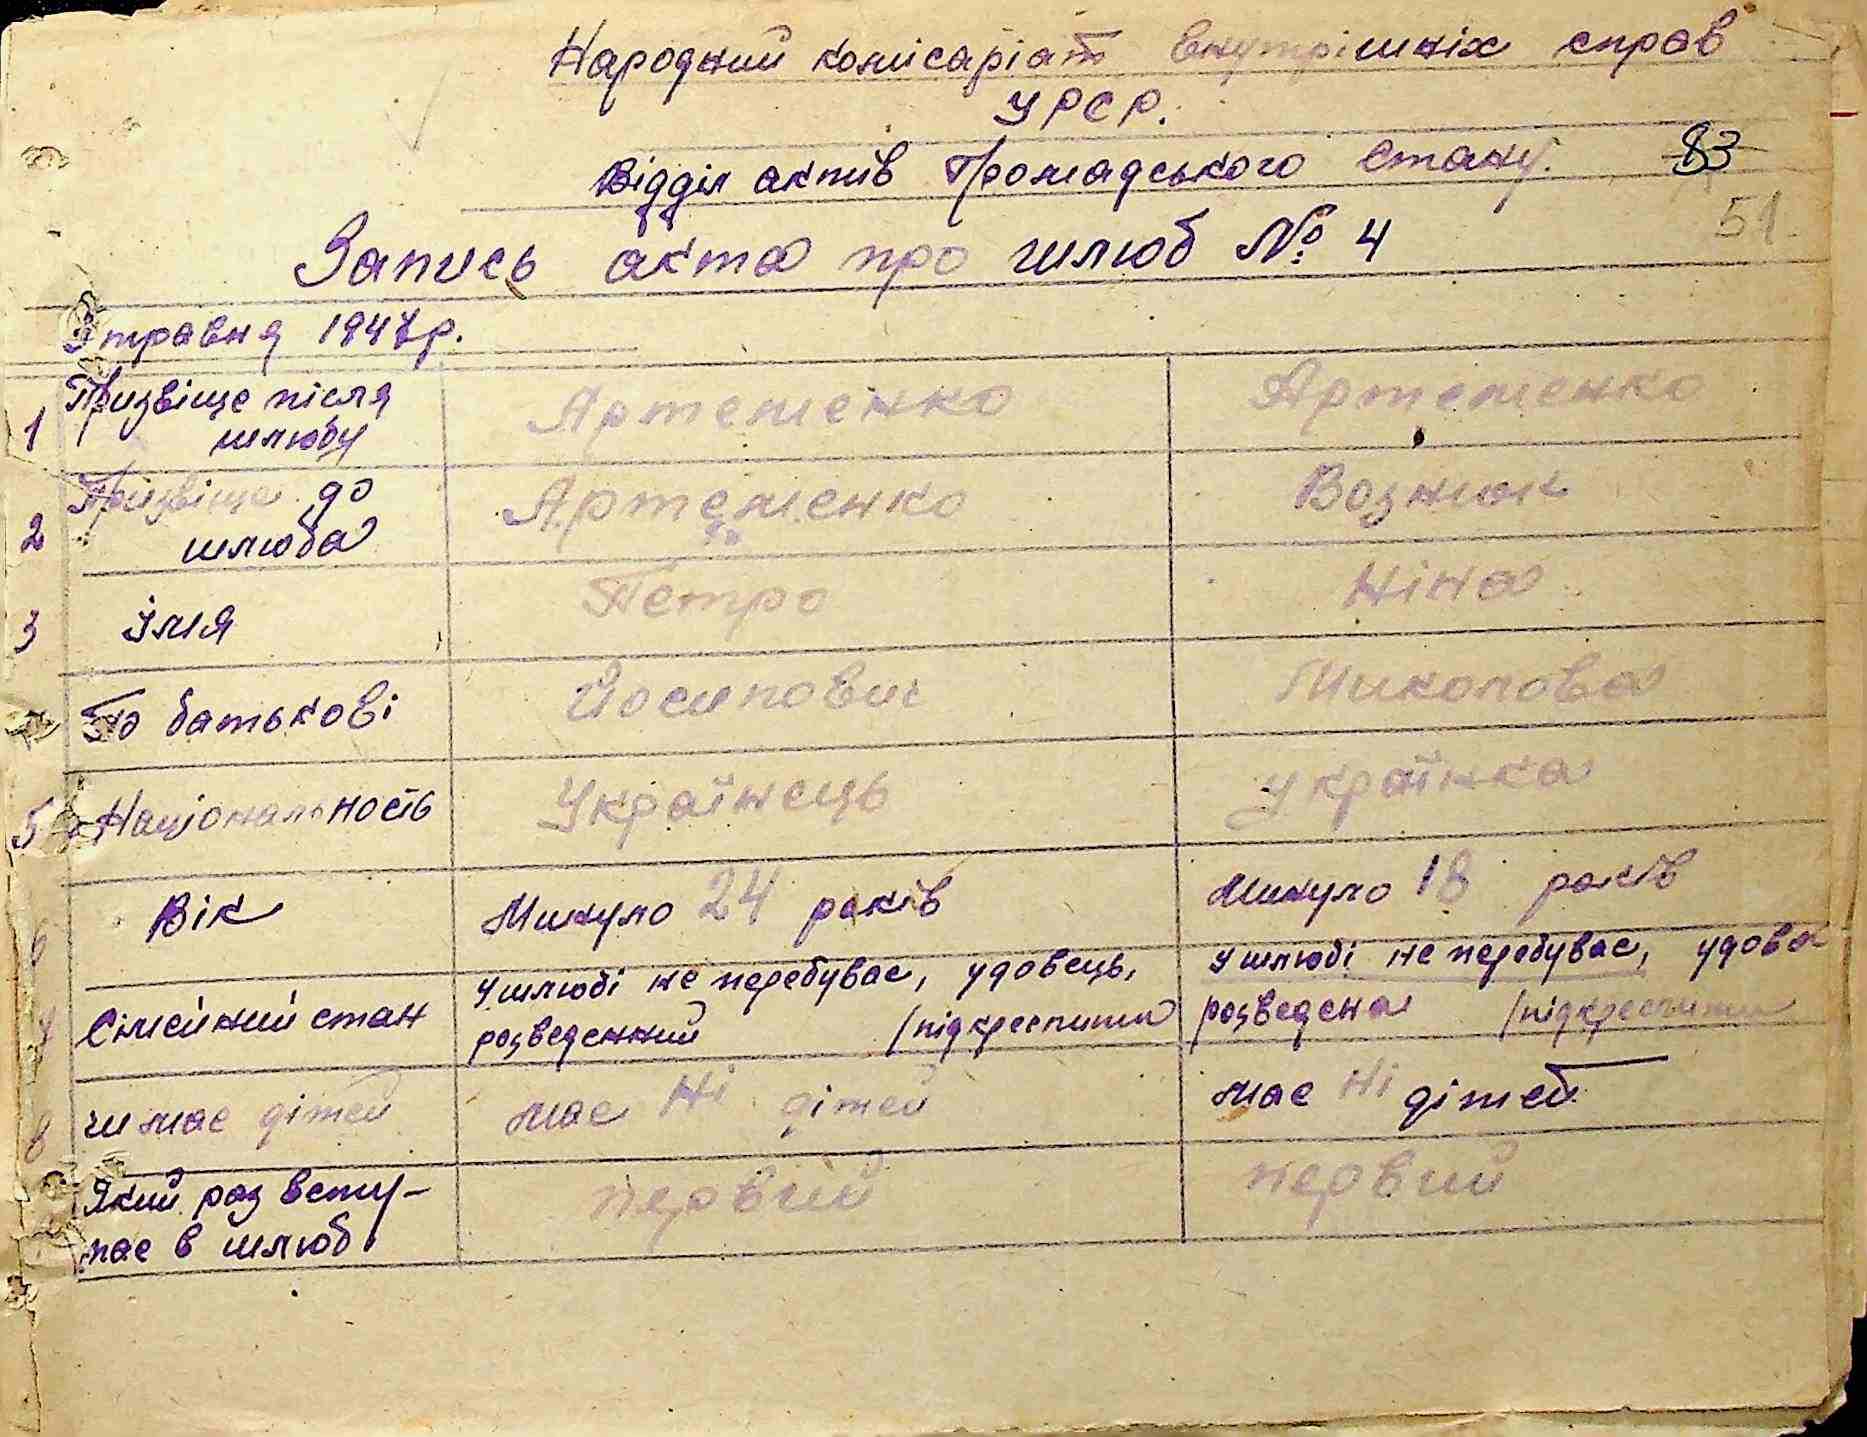 Народний комісаріат внутрішніх справ
УРСР.
Відділ актів Громадського стану. 83
51
Запись акта про шлюб № 4
3 травня 1947р.
1 Призвіще після шлюбу Артеменко Артеменко
2 Призвіще до шлюба Артеменко Вознюк
3 Імя Петро Ніна
По батькові Йосипович Миколова
5 Національность Українець українка
6 Вік Минуло 24 років Минуло 18 років
7 Сімейний стан у шлюбі не перебуває, удовець, розведенний /підкреслити у шлюбі не перебуває, удова розведена /підкреслити
8 чи має дітей має ні дітей має ні дітей
Який раз всту-
пає в шлюб первий первий